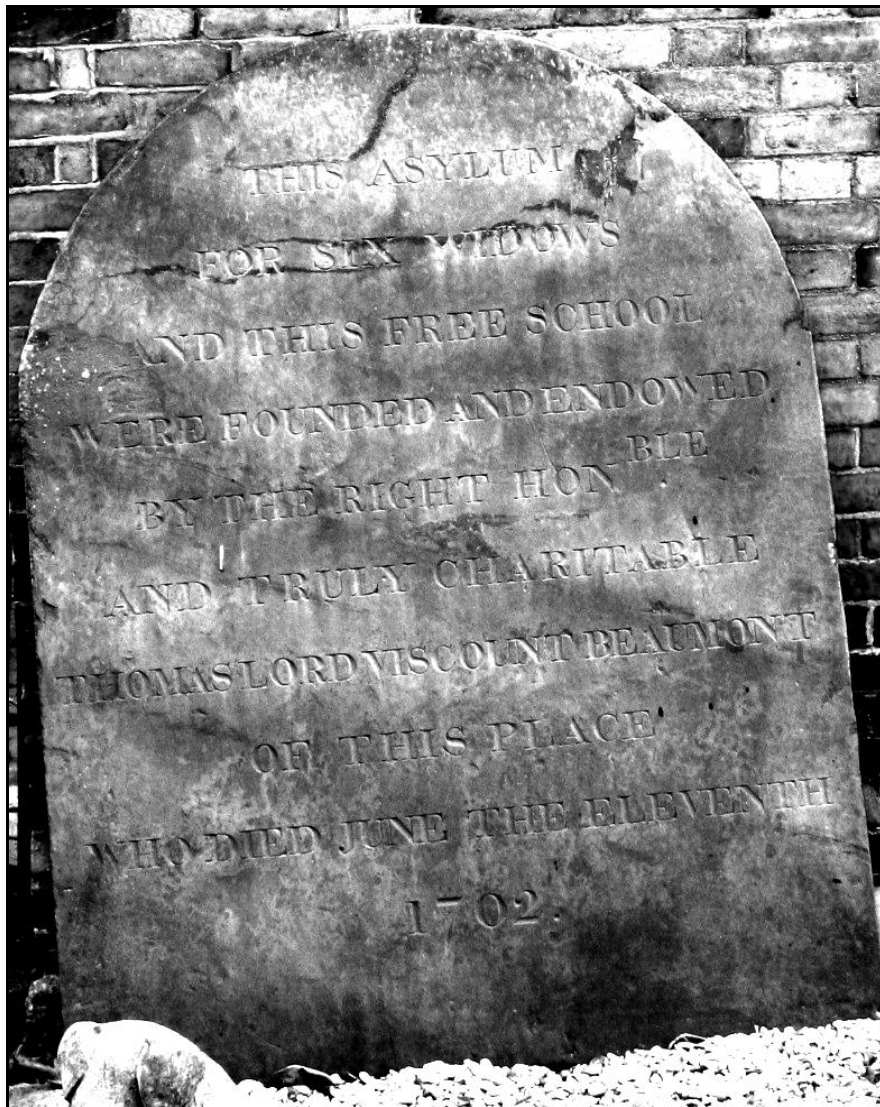 THIS ASYLUM
FOR SIX WIDOWS
AND THIS FREE SCHOOL
WERE FOUNDED AND ENDOWED
BY THE RIGHT HON.BLE
AND TRULY CHARITABLE
THOMAS LORD VISCOUNT BEAUMONT
OF THIS PLACE
WHO DIED JUNE THE ELEVENTH
1702.